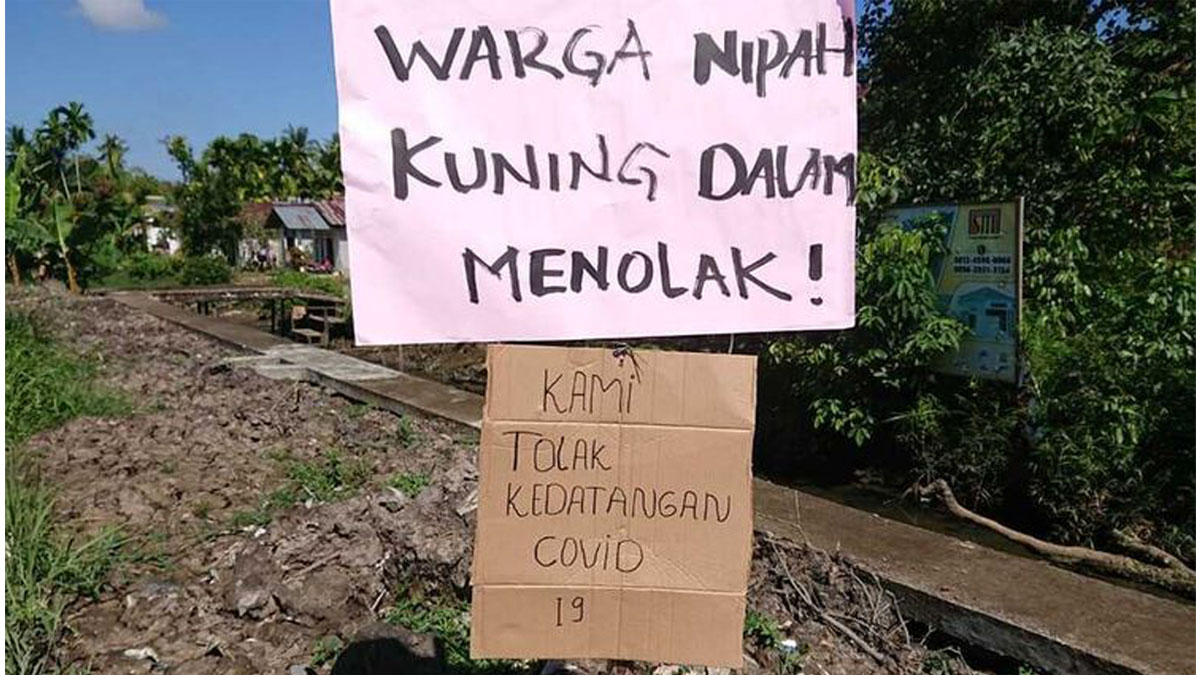 WARGA NIPAH
KUNING DALAM
MENOLAK!
KAMI
TOLAK
KEDATANGAN
COVID
19